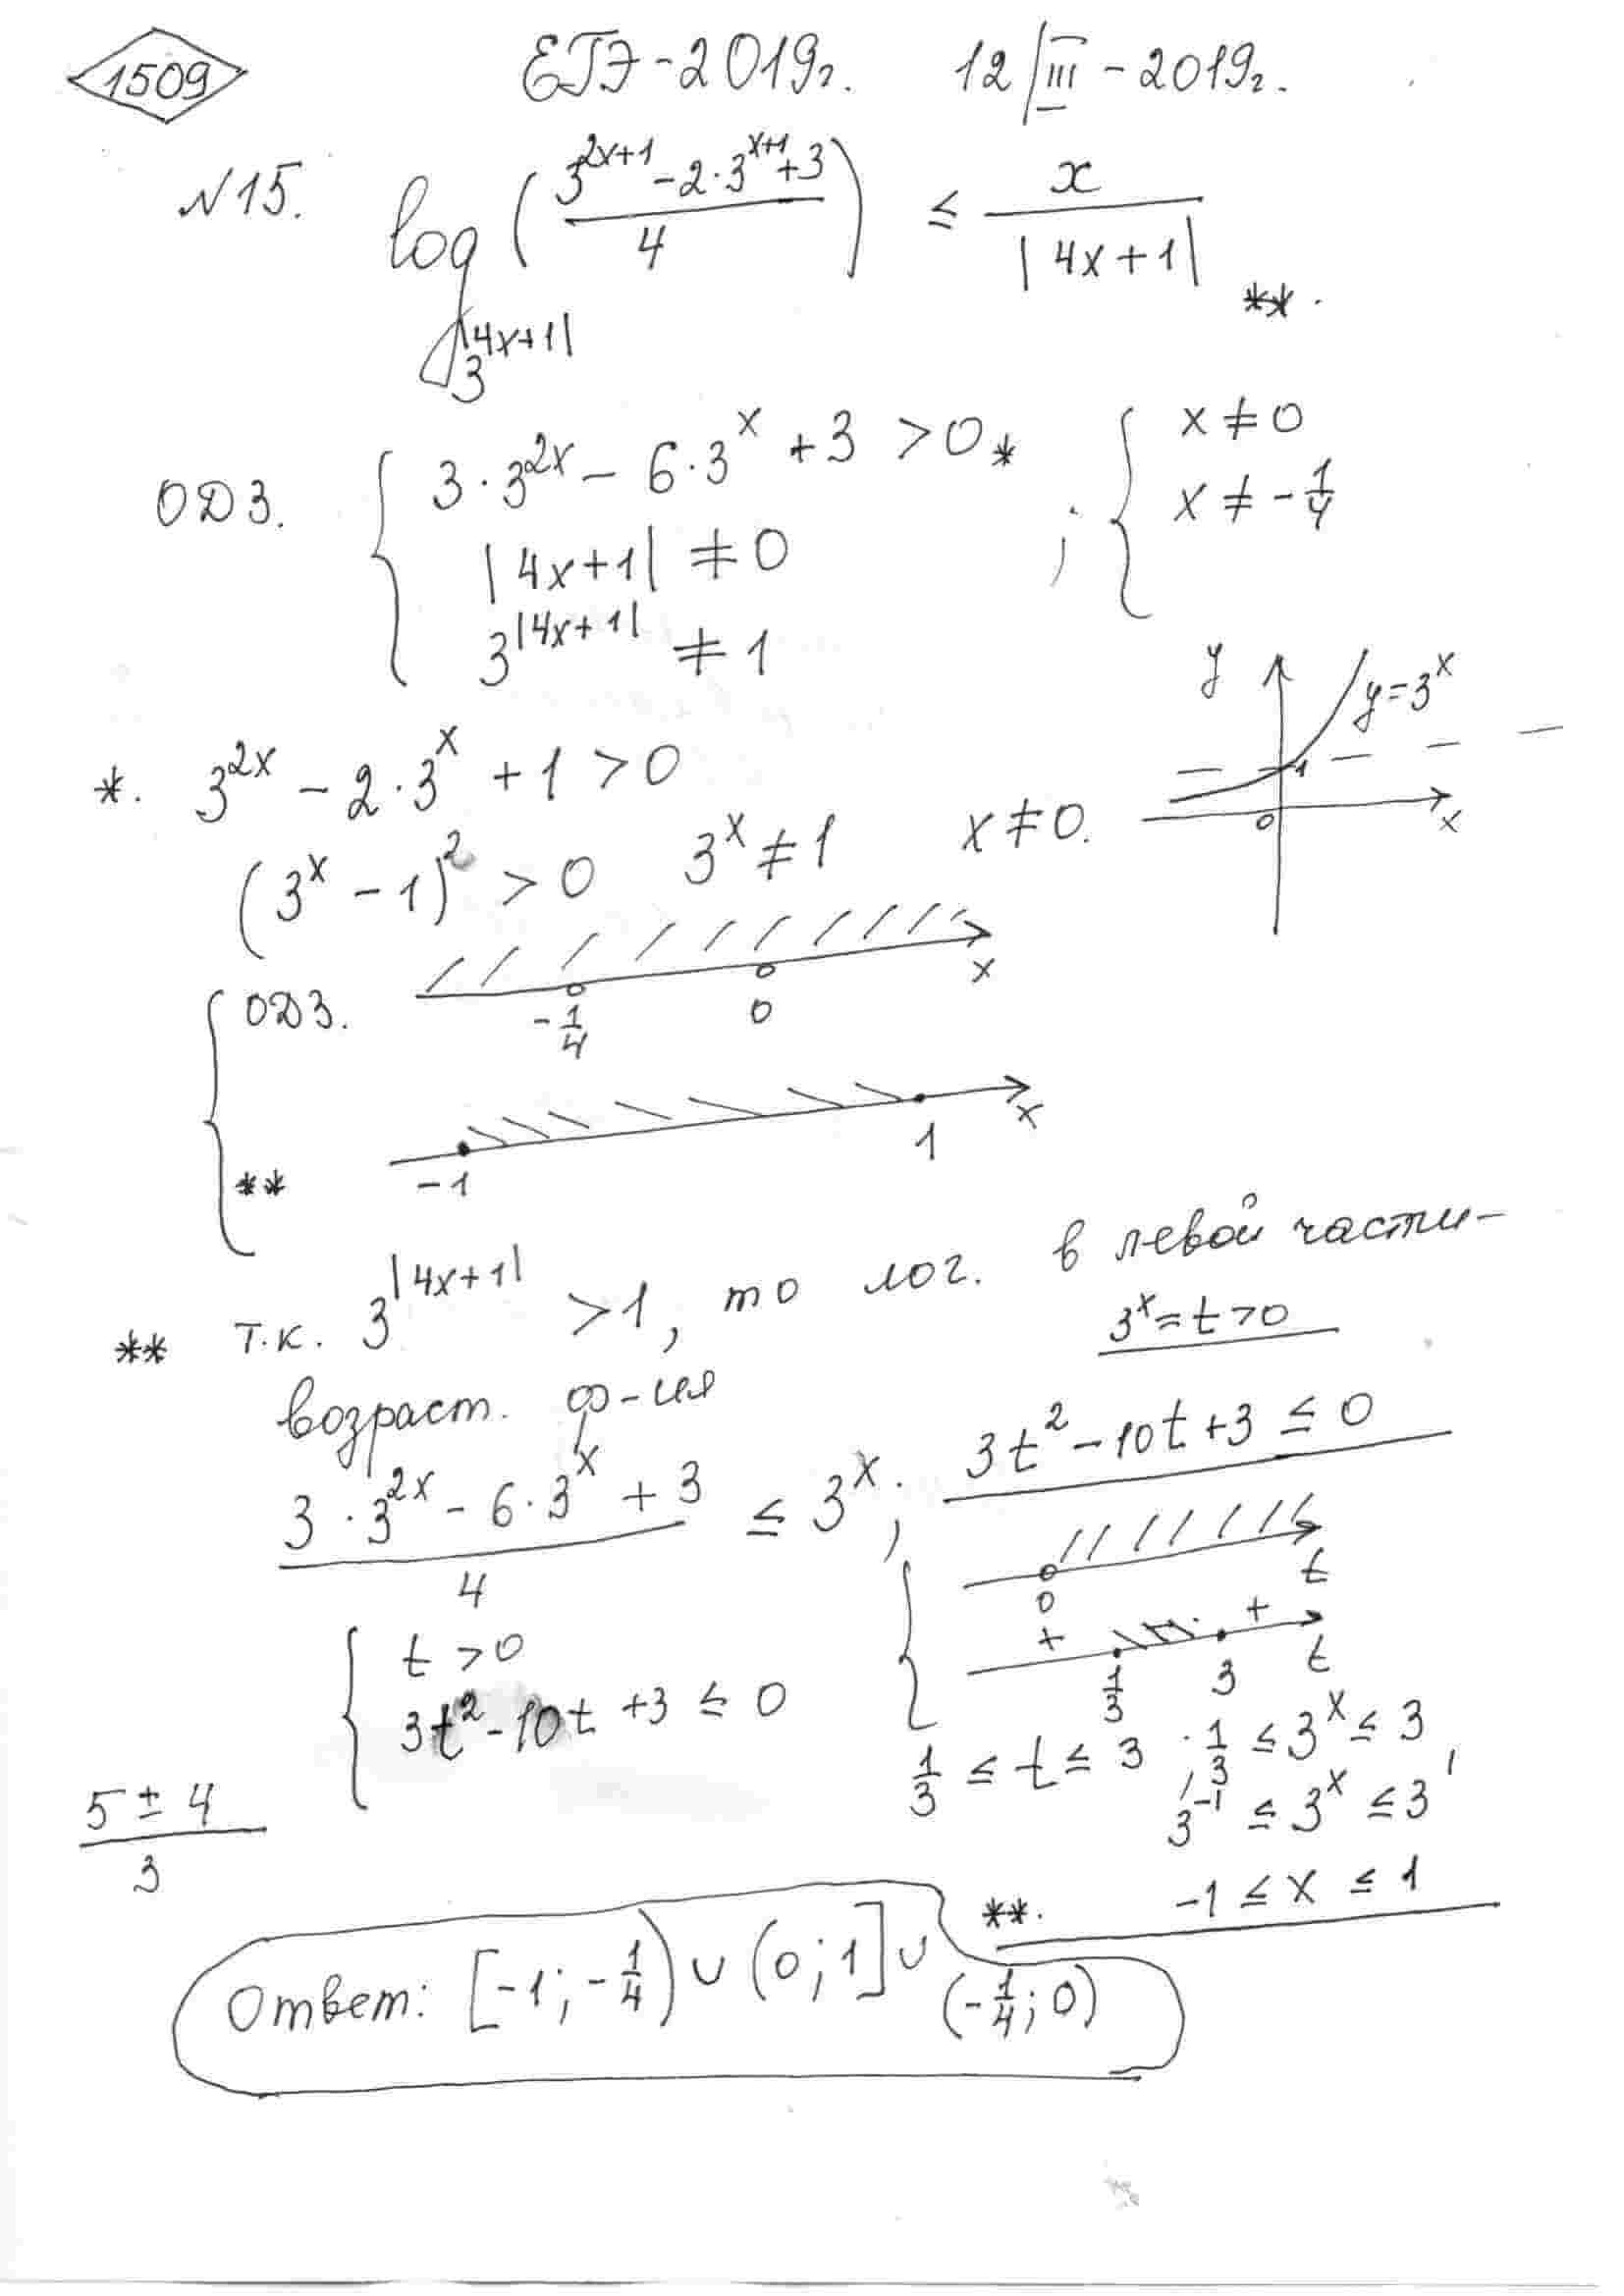 1509 ЕГЭ-2019г. 12/III-2019г.
N15. log_{3^{|4x+1|}} ((3^{2x+1} - 2·3^{x+1} + 3)/4) ≤ x/|4x+1| **.
ОДЗ. { 3·3^{2x} - 6·3^x + 3 > 0 * ; { x ≠ 0
|4x+1| ≠ 0 x ≠ -1/4
3^{|4x+1|} ≠ 1
y y=3^x 1 0 x
*. 3^{2x} - 2·3^x + 1 > 0
(3^x - 1)^2 > 0 3^x ≠ 1 x ≠ 0.
{ ОДЗ. -1/4 0 x
** -1 1 x
** т.к. 3^{|4x+1|} > 1, то лог. в левой части-
возраст. ф-ция 3^x = t > 0
(3·3^{2x} - 6·3^x + 3)/4 ≤ 3^x; 3t^2 - 10t + 3 ≤ 0
{ 0 t
+ 1/3 3 + t
{ t > 0
3t^2 - 10t + 3 ≤ 0
1/3 ≤ t ≤ 3; 1/3 ≤ 3^x ≤ 3
3^{-1} ≤ 3^x ≤ 3^1
(5 ± 4)/3
**. -1 ≤ x ≤ 1
Ответ: [-1; -1/4) ∪ (0; 1] ∪ (-1/4; 0)